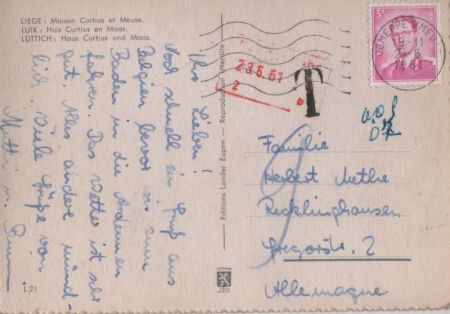 LIEGE : Maison Curtius et Meuse.
LUIK : Huis Curtius en Maas.
LÜTTICH : Haus Curtius und Maas.
Ihr Lieben!
Noch schnell ein Gruß aus
Belgien bevor wir zum
Baden in die Ardennen
fahren. Das Wetter ist sehr
gut. Alles andere münd-
lich. Viele Grüße von
L 21
Editions Lander Eupen — Reproduction interdite
23.6.61
2
T
JEMEPPE
1961
Familie
Herbert Methe
Recklinghausen
Gregorstr. 2
Allemagne